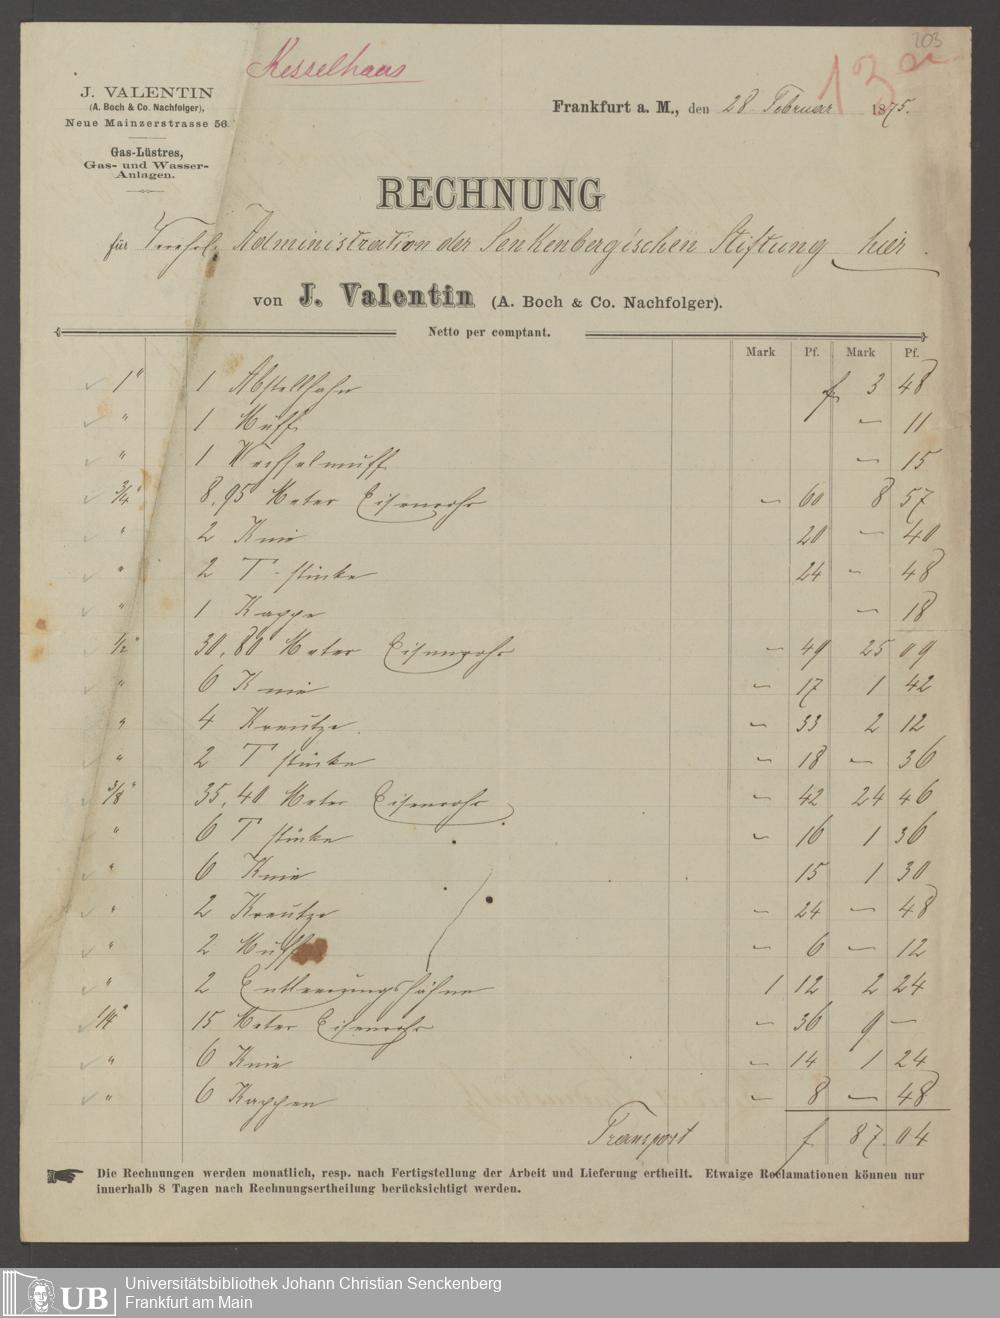 203
Kesselhaus
13a
J. VALENTIN
(A. Boch & Co. Nachfolger),
Neue Mainzerstrasse 56.
Gas-Lüstres,
Gas- und Wasser-
Anlagen.
Frankfurt a. M., den 28 Februar 1875.
RECHNUNG
für Verehrl. Administration der Senkenbergischen Stiftung hier.
von J. Valentin (A. Boch & Co. Nachfolger).
Netto per comptant.
Mark Pf. Mark Pf.
1" 1 Abstellhahn f 3 48
" 1 Muff — 11
" 1 Wechselmuff — 15
3/4" 8,95 Meter Eisenrohr — 60 8 57
" 2 Knie 20 — 40
" 2 T-stücke 24 — 48
" 1 Kappe — 18
1/2" 30,80 Meter Eisenrohr — 49 25 09
" 6 Knie — 17 1 42
" 4 Kreutze — 33 2 12
" 2 T stücke — 18 — 36
3/8" 35,40 Meter Eisenrohr — 42 24 46
" 6 T stücke — 16 1 36
" 6 Knie 15 1 30
" 2 Kreutze — 24 — 48
" 2 Muff — 6 — 12
" 2 Entleerungshähne 1 12 2 24
1/4" 15 Meter Eisenrohr — 36 9 —
" 6 Knie — 14 1 24
" 6 Kappen — 8 — 48
Transport f 87.04
Die Rechnungen werden monatlich, resp. nach Fertigstellung der Arbeit und Lieferung ertheilt. Etwaige Reclamationen können nur
innerhalb 8 Tagen nach Rechnungsertheilung berücksichtigt werden.
UB
Universitätsbibliothek Johann Christian Senckenberg
Frankfurt am Main